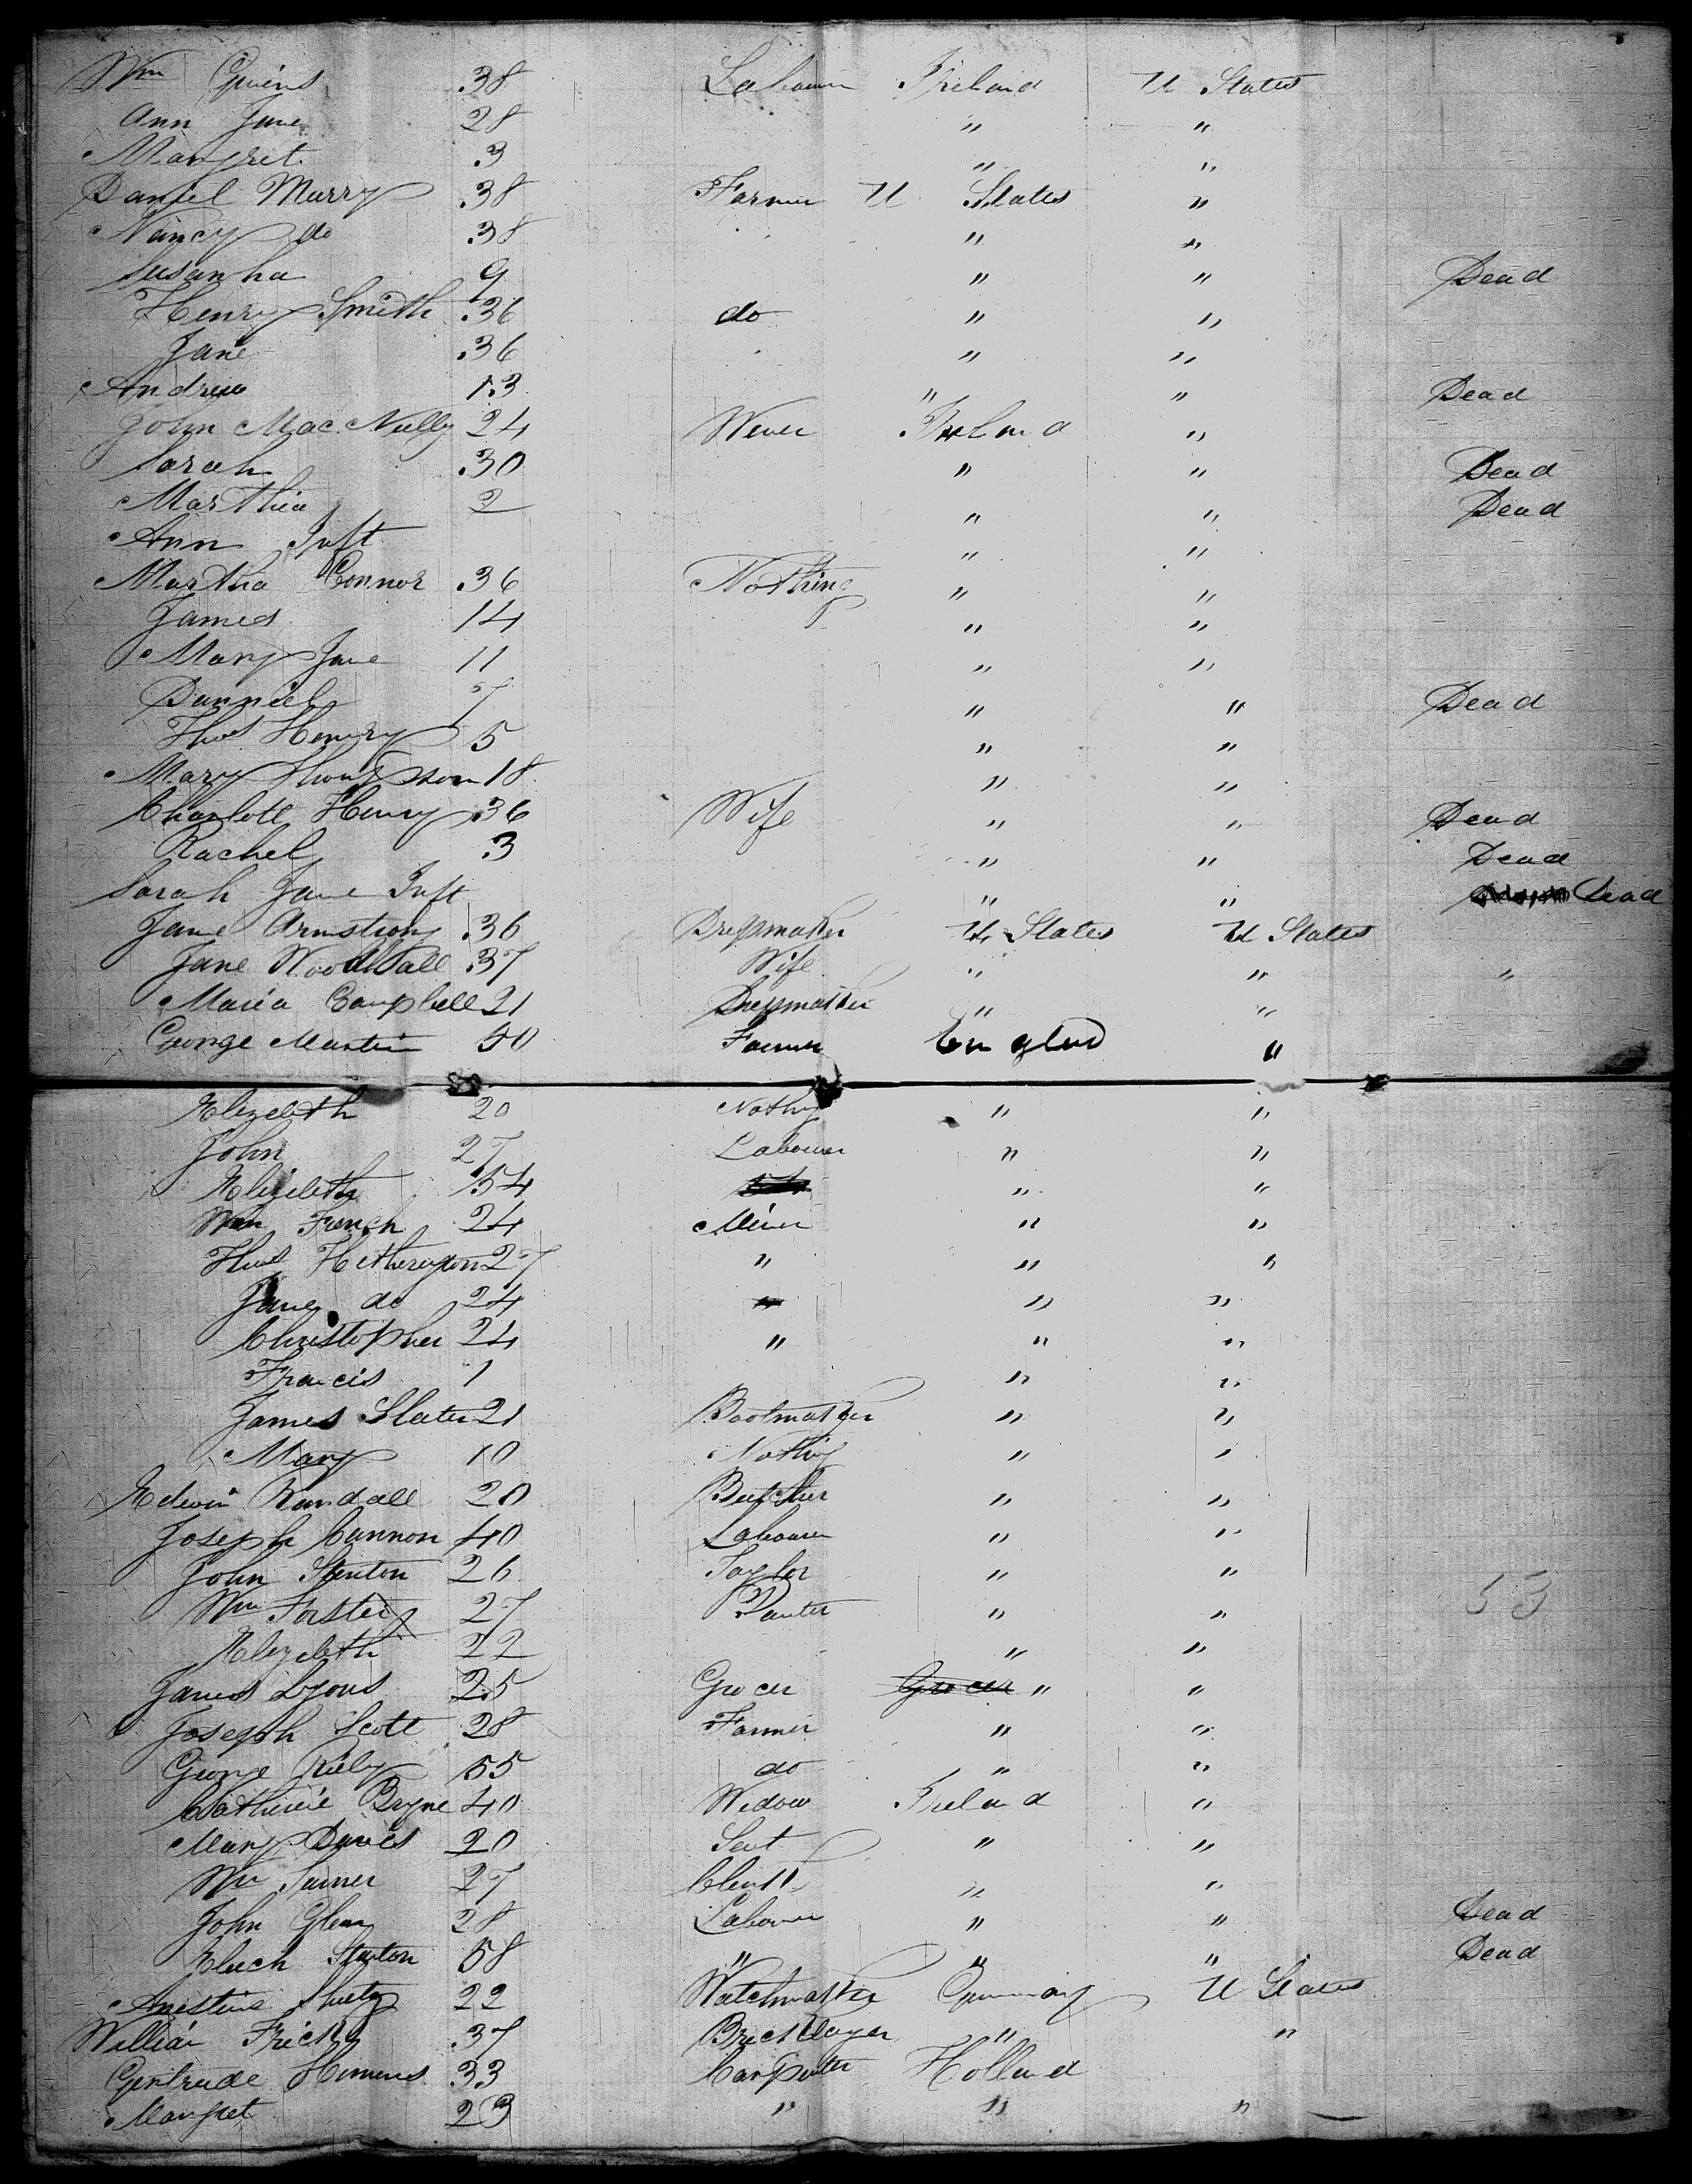 Wm Givens 38 Labourer Ireland U States
Ann Jane 28 " "
Margret 3 " "
Daniel Murry 38 Farmer U States "
Nancy do 38 " "
Susanha 9 " " Dead
Henry Smith 36 do " "
Jane 36 " "
Andrew 13 " " Dead
John MacNully 24 Wever Ireland "
Sarah 30 " " Dead
Marthia 2 " " Dead
Ann Inft " "
Martha Connor 36 Nothing " "
James 14 " "
Mary Jane 11 " "
Danniel 7 " " Dead
Thos Henry 5 " "
Mary Thompson 18 " "
Charlott Henry 36 Wife " " Dead
Rachel 3 " " Dead
Sarah Jane Inft " " Dead
Jane Armstrong 36 Dressmaker U States U States
Jane Woodhall 37 Wife " " "
Maria Campbell 21 Dressmaker " "
George Martin 50 Farmer Englnd "
Elizebeth 20 Nothing " "
John 27 Labourer " "
Elizebeth 54 " "
Wm French 24 Miner " "
Thos Hetherigton 27 " " "
Jane do 24 " " "
Christopher 24 " " "
Francis 1 " "
James Slater 21 Bootmaker " "
Mary 10 Nothing " "
Edwin Randall 20 Butcher " "
Joseph Cannon 40 Labourer " "
John Stenton 26 Taylor " "
Wm Forster 27 Panter " "
Elizebeth 22 " "
James Lyons 25 Grocer Grocer " "
Joseph Scott 28 Farmer " "
George Rieby 55 do " "
Catherine Bryne 40 Widow Ireland "
Mary Davies 20 Sert " "
Wm Turner 27 Clerk " "
John Glen 28 Labourer " " Dead
Staiton 58 " " " Dead
22 Watchmaker Germany U States
William Frick 37 Bricklayer " "
Gertrude 33 Carpenter Holland
Margret 23 " " "
53